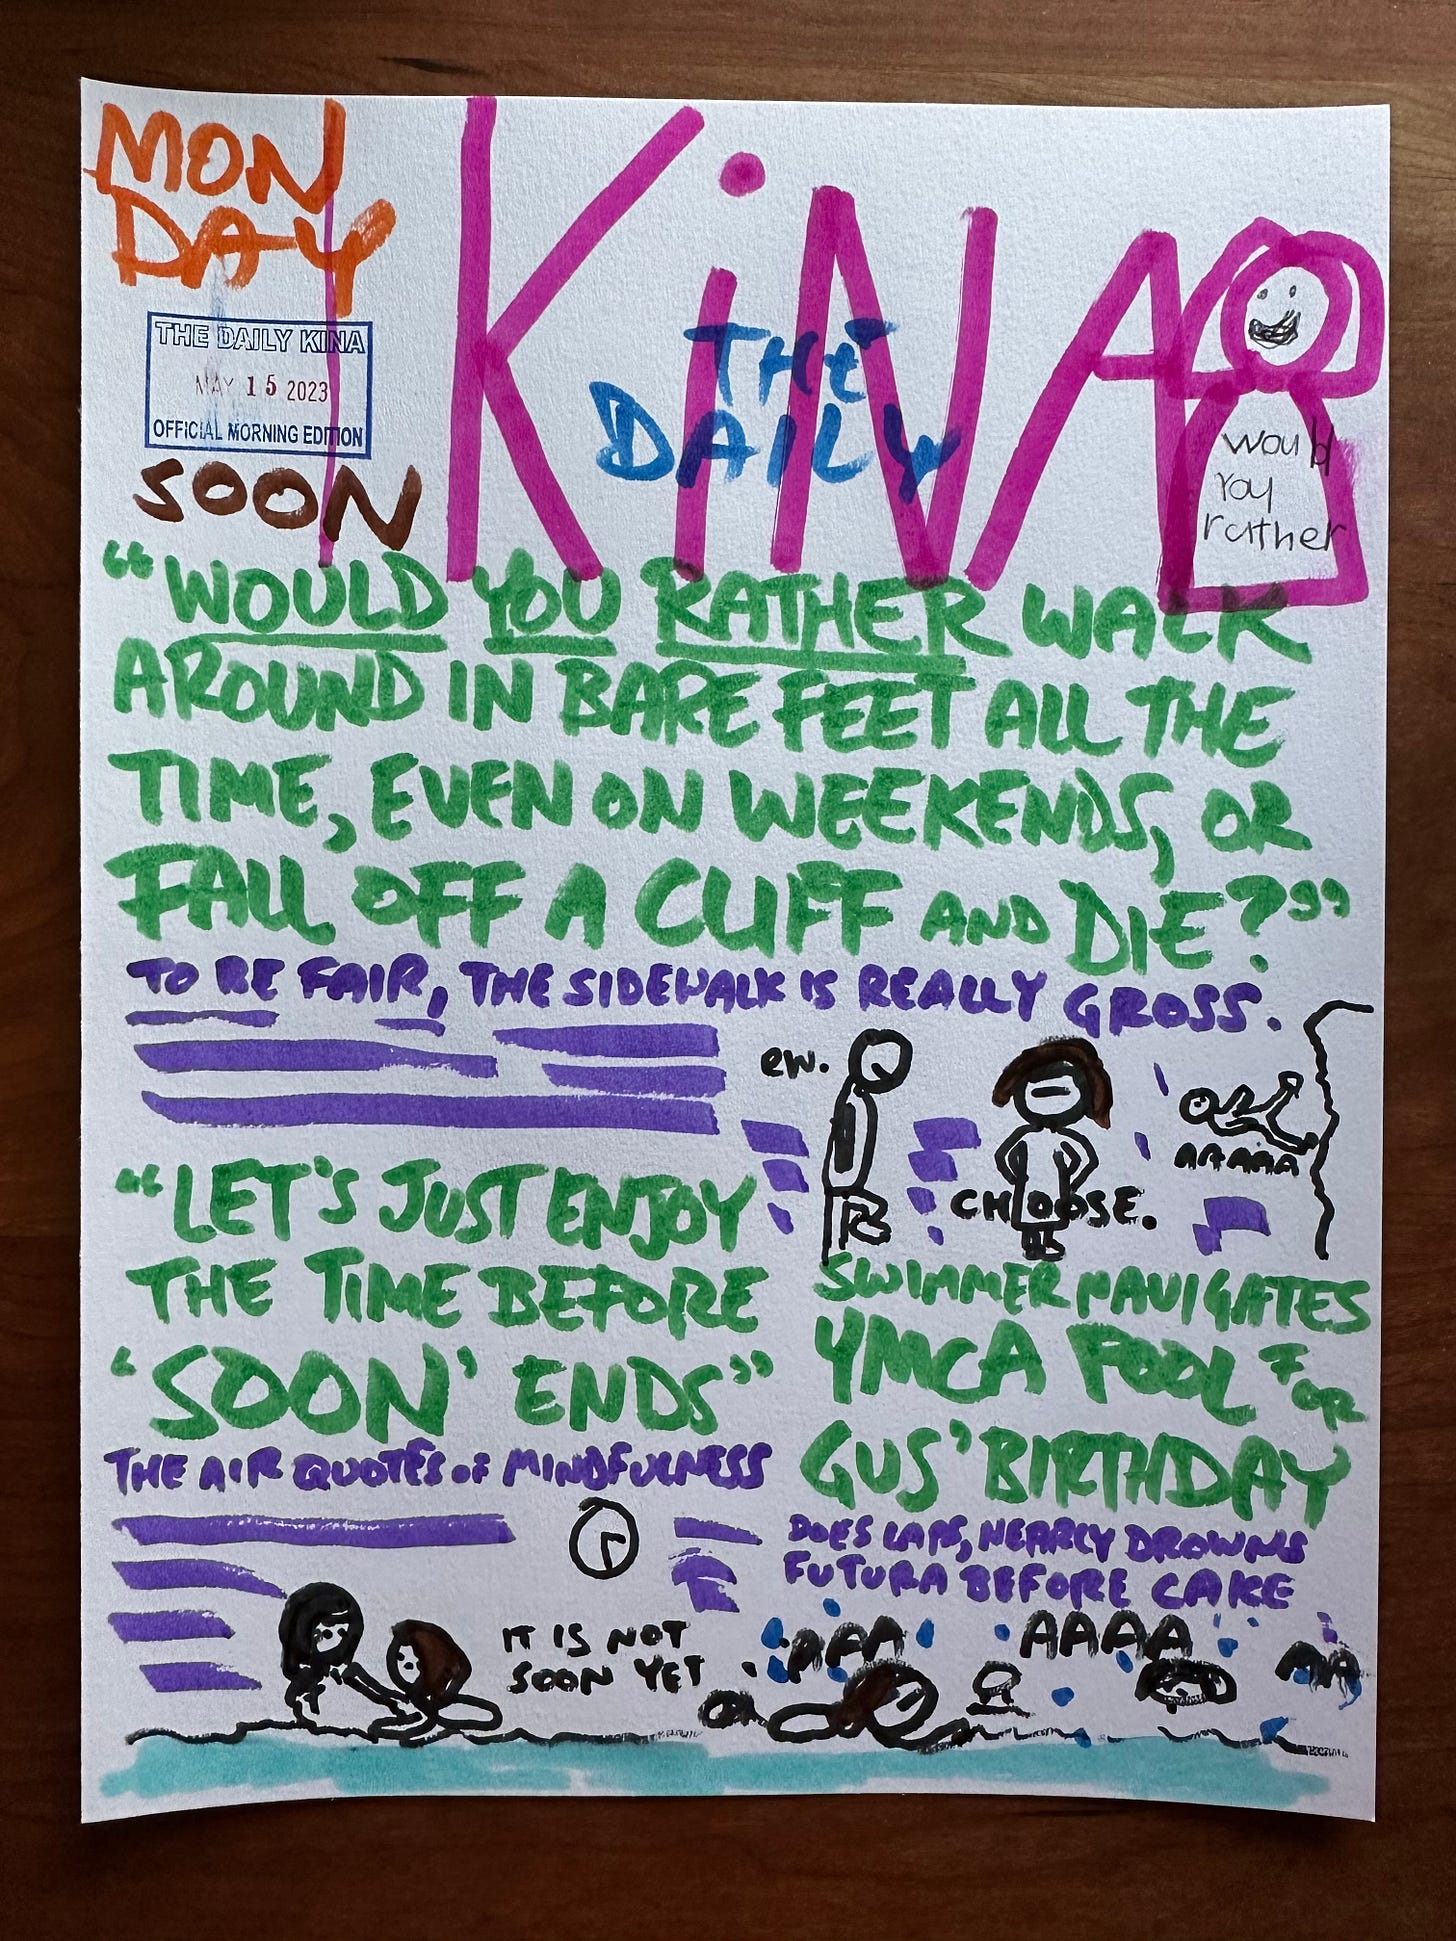 MON
DAY
KiNA
THE
DAILY
THE DAILY KINA
MAY 15 2023
OFFICIAL MORNING EDITION
SOON
would
You
rather
“WOULD YOU RATHER WALK
AROUND IN BARE FEET ALL THE
TIME, EVEN ON WEEKENDS, OR
FALL OFF A CLIFF AND DIE?”
TO BE FAIR, THE SIDEWALK IS REALLY GROSS.
ew.
CHOOSE.
AAAAAA
“LET'S JUST ENJOY
THE TIME BEFORE
‘SOON’ ENDS”
THE AIR QUOTES OF MINDFULNESS
IT IS NOT
SOON YET
SWIMMER NAVIGATES
YMCA POOL FOR
GUS' BIRTHDAY
DOES LAPS, NEARLY DROWNS
FUTURA BEFORE CAKE
AAAA
AAAA
AAA